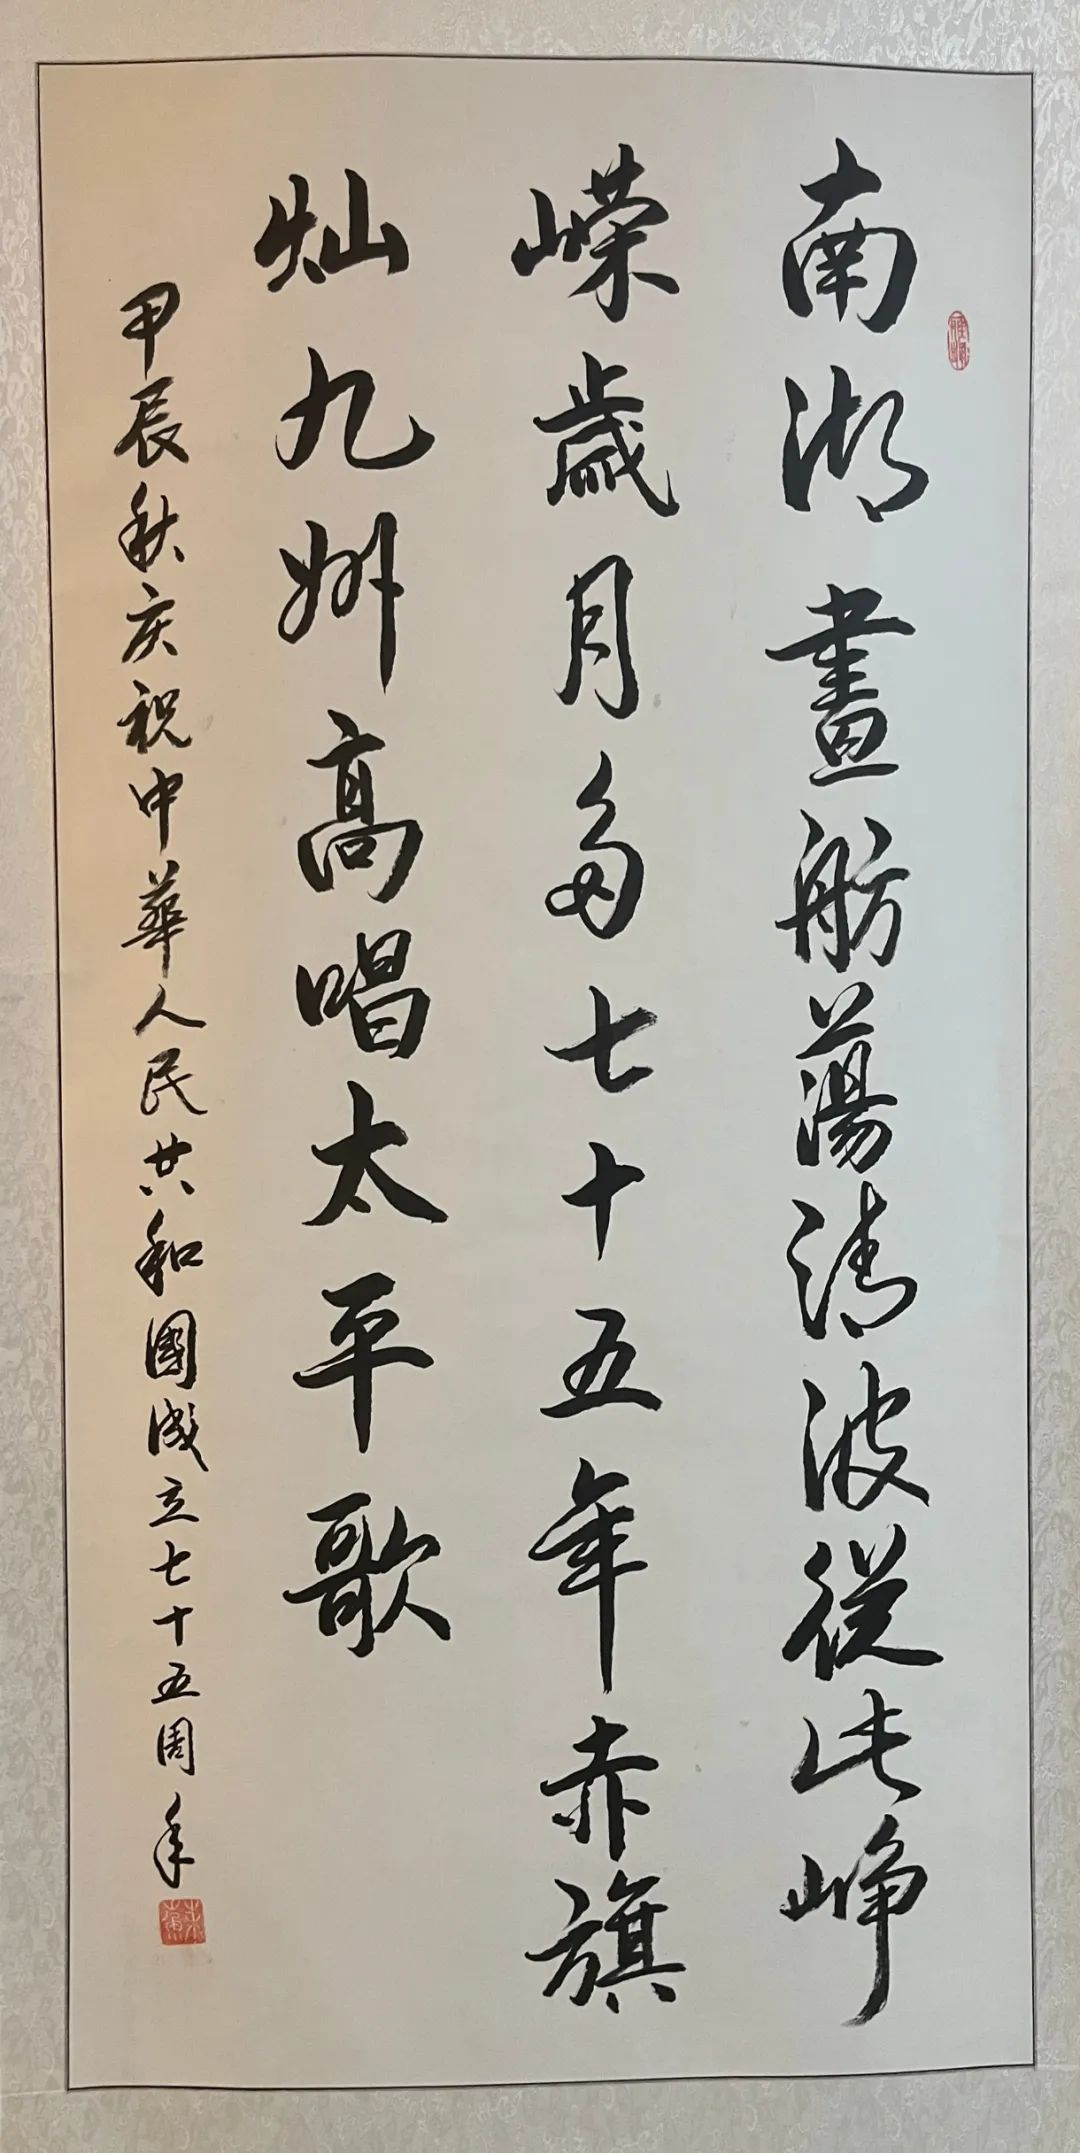 南湖畫舫蕩清波從此崢
嶸歲月多七十五年赤旗
灿九州高唱太平歌
甲辰秋庆祝中華人民共和國成立七十五周年